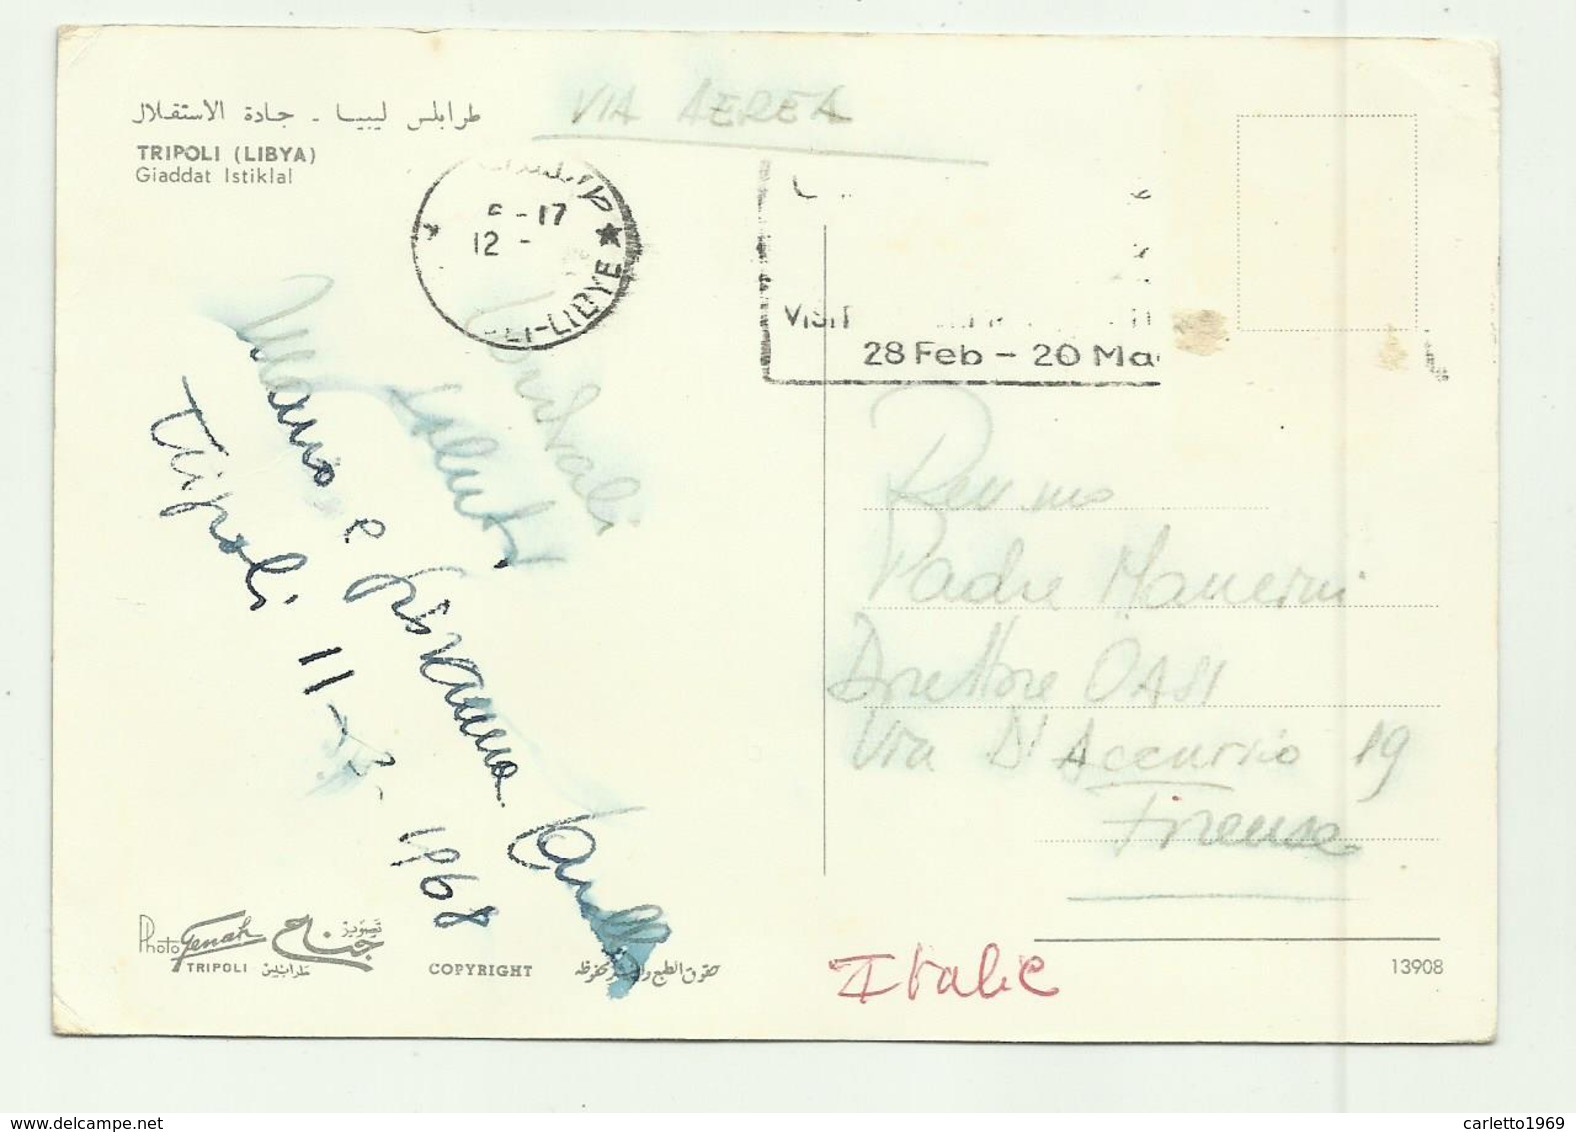 طرابلس ليبيا - جادة الاستقلال
TRIPOLI (LIBYA)
Giaddat Istiklal
VIA AEREA
-17
12 -
LI-LIBYE
VISIT
28 Feb - 20 Ma
Cordiali
saluti
Mario e Giovanna
Tripoli 11-3-1968
Rev.mo
Padre Mancini
Direttore OASI
Via D'Accursio 19
Firenze
Italie
Photo Genah
TRIPOLI
تصوير جناح
طرابلس
COPYRIGHT
حقوق الطبع والنشر محفوظة
13908
delcampe.net
carletto1969